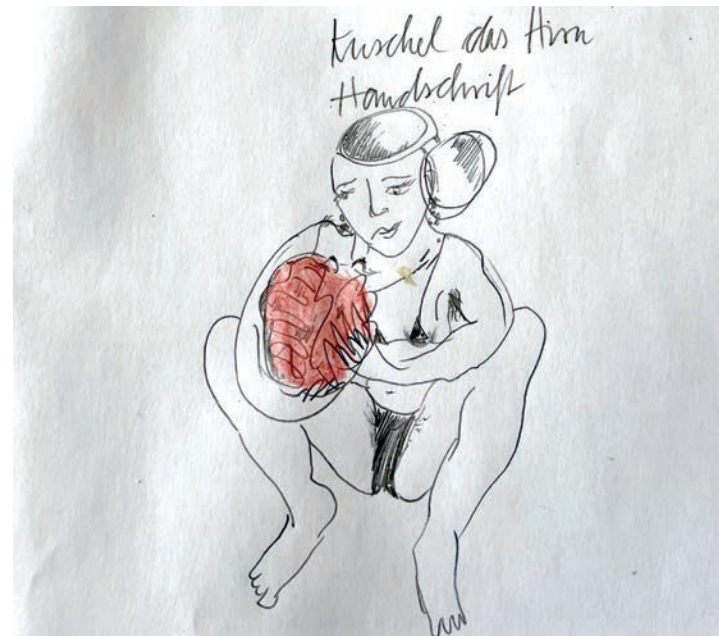 Kuschel das Hirn
Handschrift